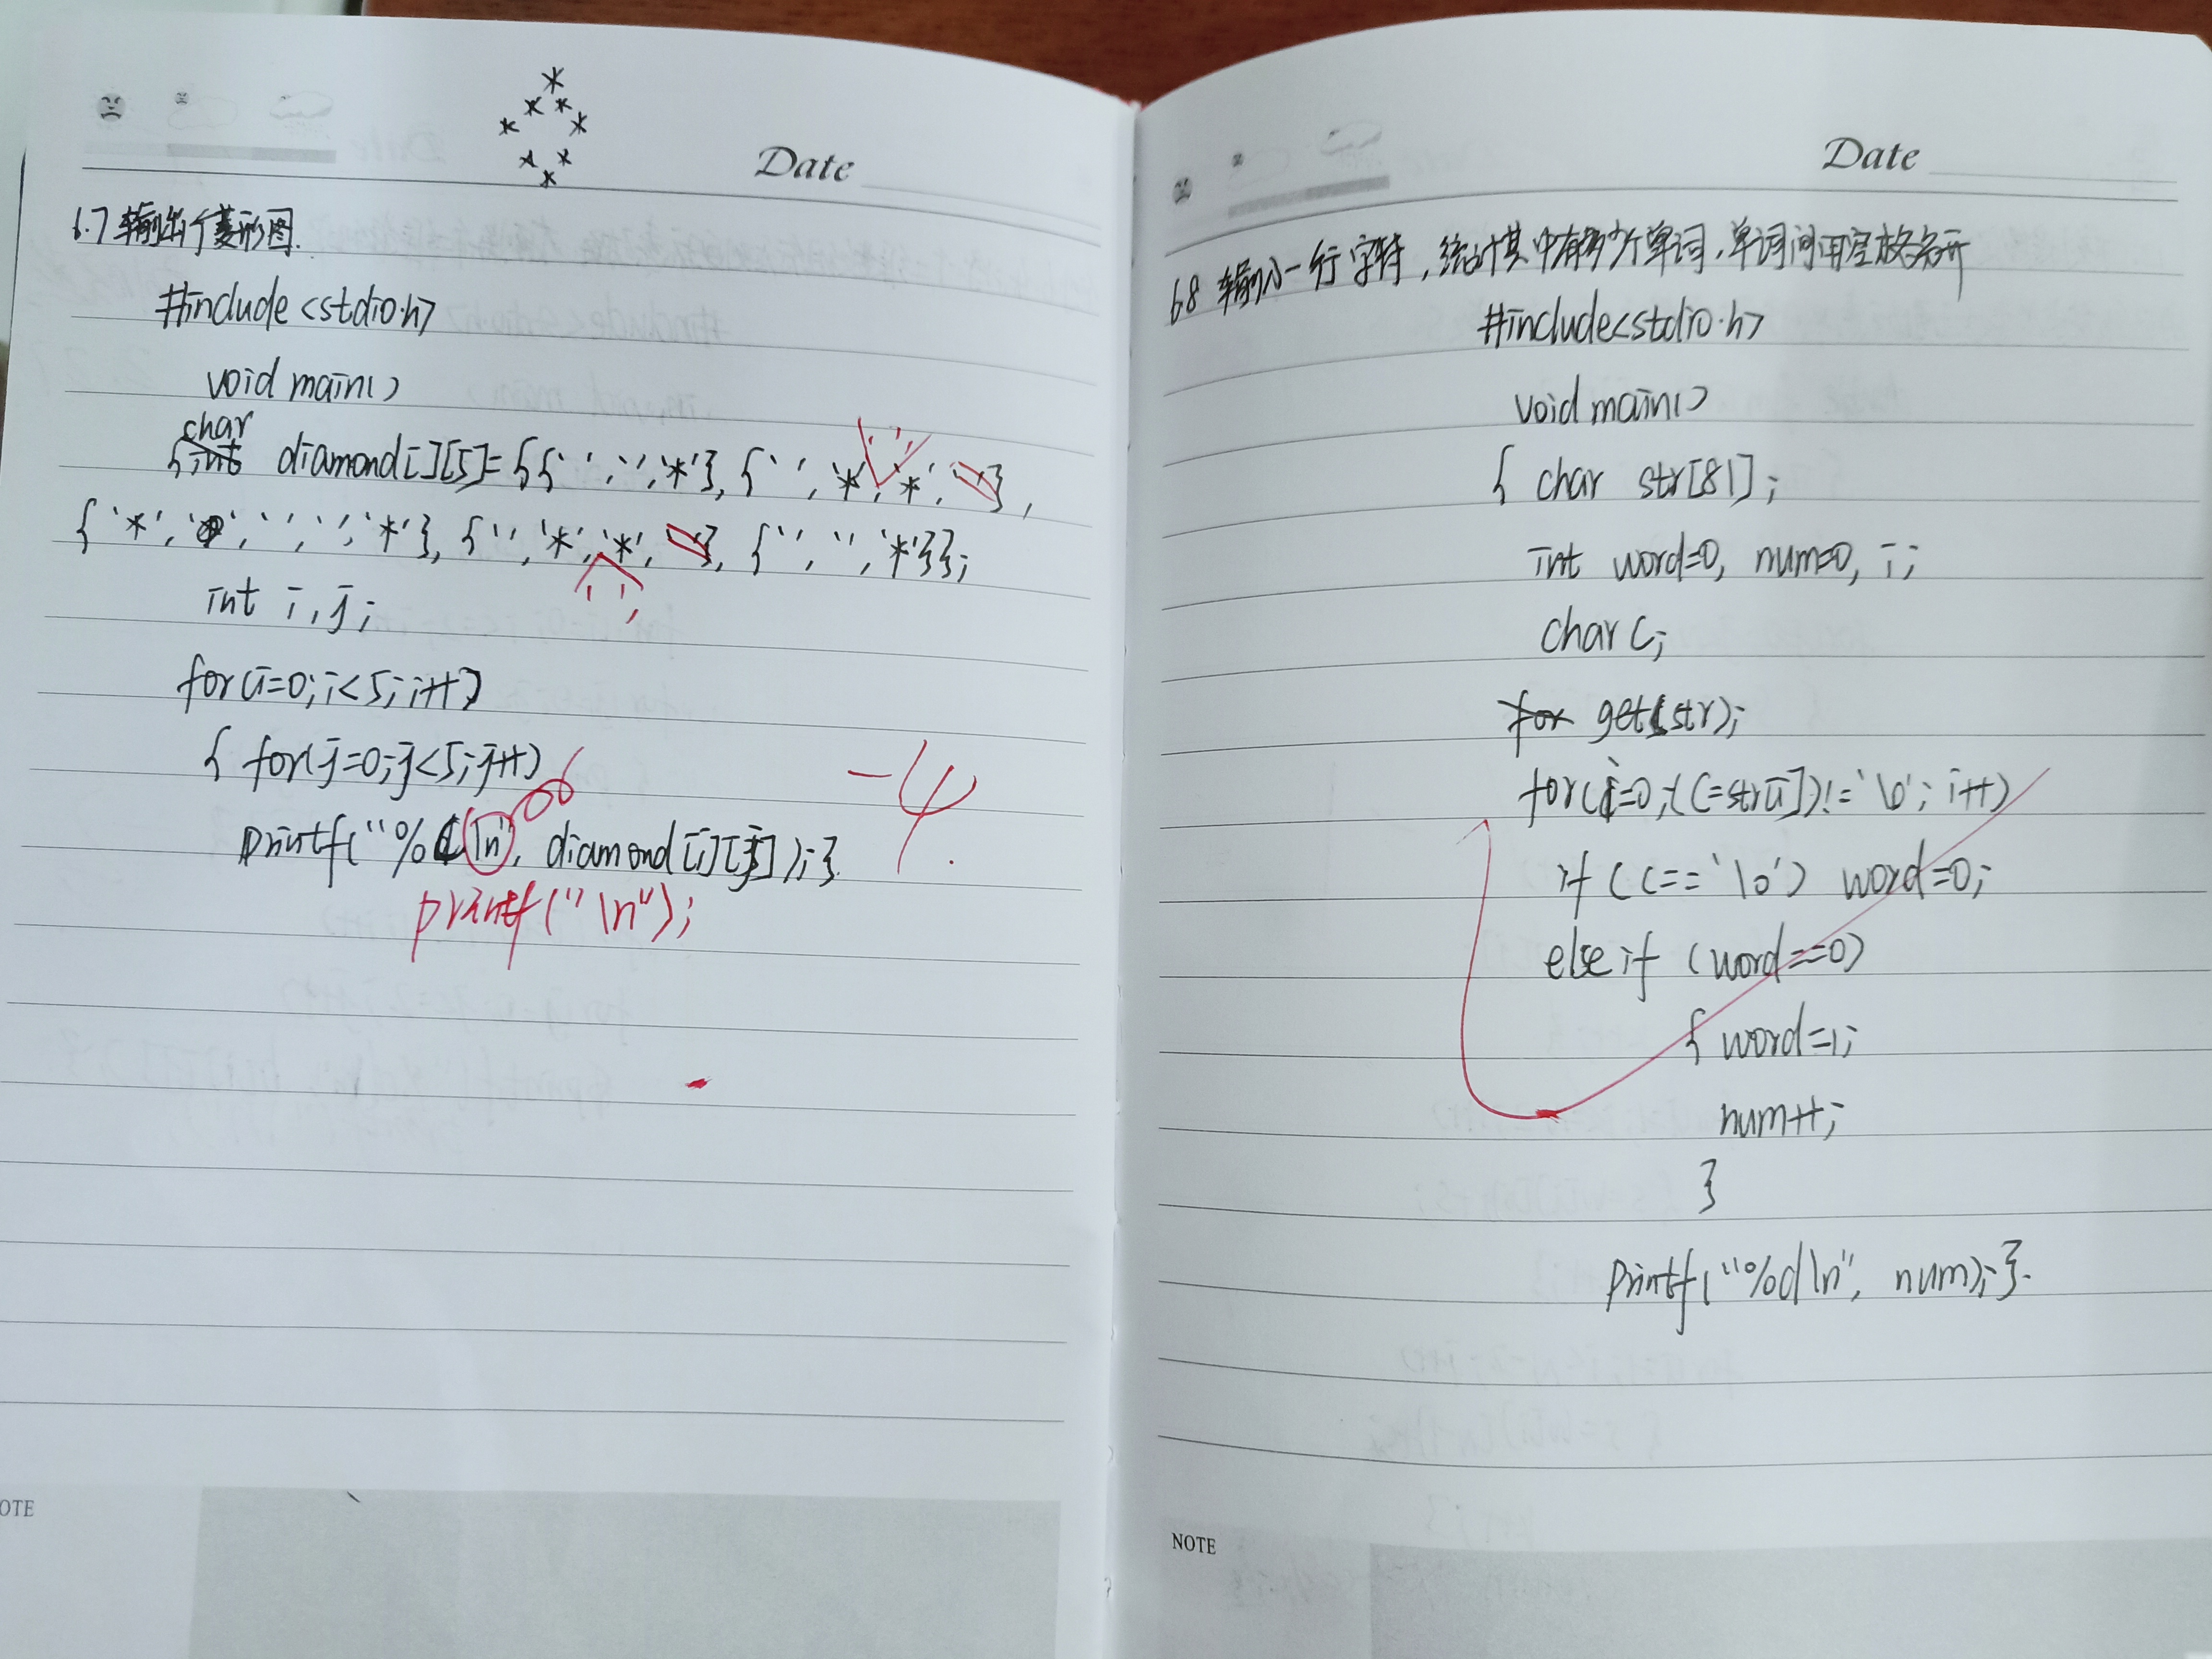 Date
6.7 输出个菱形图.
#include <stdio.h>
void main()
char
{int diamond[][5]={{' ',' ','*'},{' ','*','*',' '},
{'*',' ',' ',' ','*'},{' ','*','*',' '},{' ',' ','*'}};
int i,j;
for(i=0;i<5;i++)
{ for(j=0;j<5;j++)
printf("%c\n", diamond[i][j]);}
-4
printf("\n");
OTE
Date
6.8 输入一行字符,统计其中有多少个单词,单词间用空格分开
#include<stdio.h>
void main()
{ char str[81];
int word=0, num=0, i;
char c;
for get(str);
for(i=0;(c=str[i])!='\0'; i++)
if (c=='\0') word=0;
else if (word==0)
{ word=1;
num++;
}
printf("%d\n", num);}.
NOTE